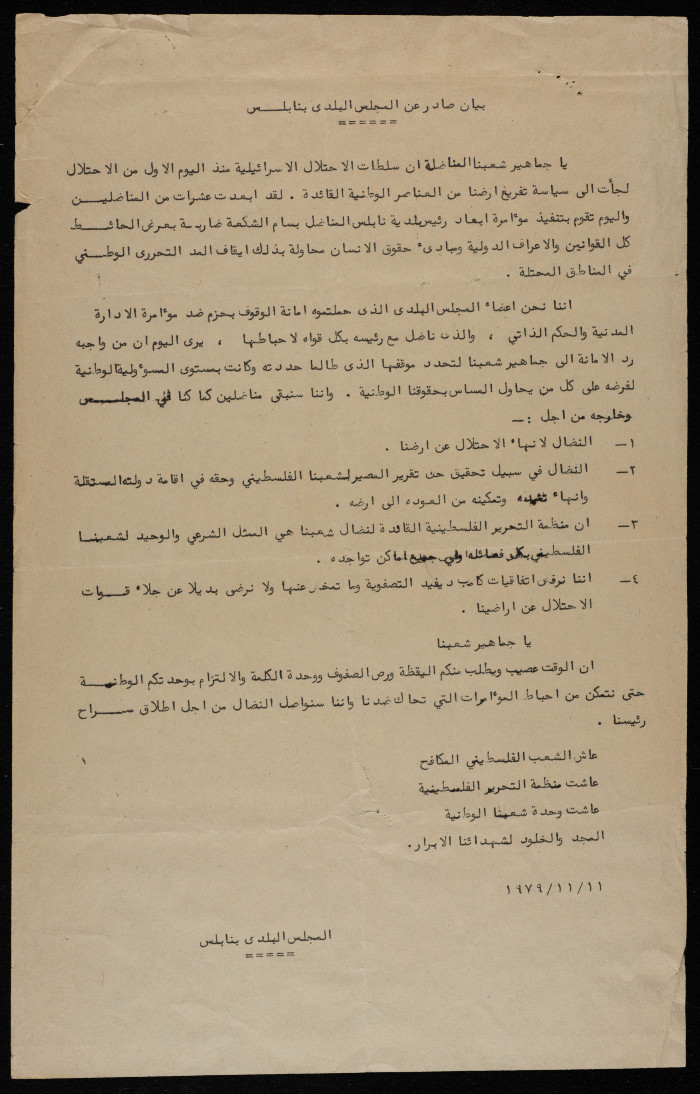 بيان صادر عن المجلس البلدى بنابلـــس
======
يا جماهير شعبنا المناضلة ان سلطات الاحتلال الاسرائيلية منذ اليوم الاول من الاحتلال
لجأت الى سياسة تفريغ ارضنا من العناصر الوطنية القائدة . لقد ابعدت عشرات من المناضليـــن
واليوم تقوم بتنفيذ موٴامرة ابعاد رئيس بلدية نابلس المناضل بسام الشكعة ضاربـة بعرض الحائـــط
كل القوانين والاعراف الدولية ومبادىٴ حقوق الانسان محاولة بذلك ايقاف المد التحررى الوطـــني
في المناطق المحتلة .
اننا نحن اعضاٴ المجلس البلدى الذى حملتموه امانة الوقوف بحزم ضد موٴامرة الادارة
المدنية والحكم الذاتي ، والذى ناضل مع رئيسه بكل قواه لاحباطها ، يرى اليوم ان من واجبه
رد الامانة الى جماهير شعبنا لتحدد موقفها الذى طالما حددته وكانت بمستوى المسوٴولية الوطنية
لفرضه على كل من يحاول المساس بحقوقنا الوطنية . واننا سنبقى مناضلين كما كنا في المجلـــس
وخارجه من اجل :ــ
١ــ النضال لانهاٴ الاحتلال عن ارضنا .
٢ــ النضال في سبيل تحقيق حق تقرير المصير لشعبنا الفلسطيني وحقه في اقامة دولته المستقلة
وانهاٴ تشريده وتمكينه من العوده الى ارضه .
٣ــ ان منظمة التحرير الفلسطينية القائدة لنضال شعبنا هي الممثل الشرعي والوحيد لشعبنـــا
الفلسطيني بكل فصائله وفي جميع اماكن تواجده .
٤ــ اننا نرفض اتفاقيات كامب ديفيد التصفوية وما تمخض عنها ولا نرضى بديلا عن جلاٴ قـــوات
الاحتلال عن اراضينا .
يا جماهير شعبنا
ان الوقت عصيب ويطلب منكم اليقظة ورص الصفوف ووحدة الكلمة والالتزام بوحدتكم الوطنيـــة
حتى نتمكن من احباط الموٴامرات التي تحاك ضدنا واننا سنواصل النضال من اجل اطلاق ســـراح
رئيسنا .
عاش الشعب الفلسطيني المكافح
عاشت منظمة التحرير الفلسطينية
عاشت وحدة شعبنا الوطنية
المجد والخلود لشهدائنا الابرار.
١٩٧٩/١١/١١
المجلس البلدى بنابلس
=====